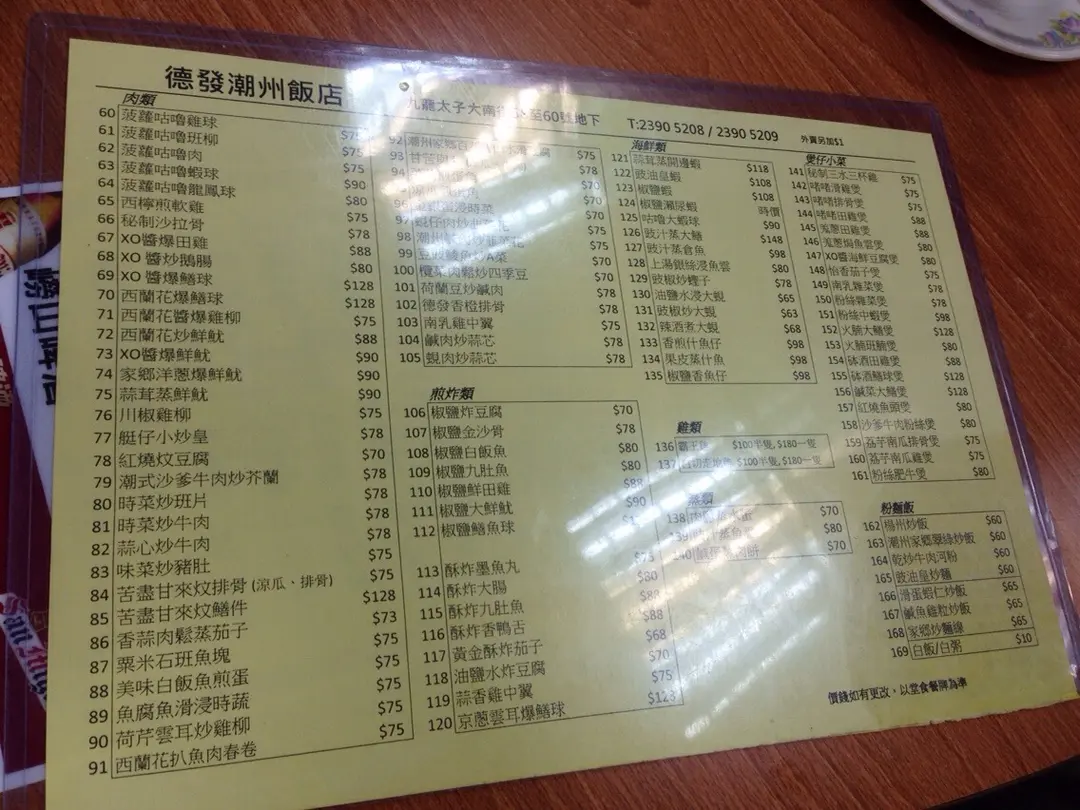 德發潮州飯店
九龍太子大南街 至60號地下 T:2390 5208 / 2390 5209 外賣另加$1
肉類
60 菠蘿咕嚕雞球 $75
61 菠蘿咕嚕班柳 $75
62 菠蘿咕嚕肉 $75
63 菠蘿咕嚕蝦球 $90
64 菠蘿咕嚕龍鳳球 $80
65 西檸煎軟雞 $75
66 秘制沙拉骨 $78
67 XO醬爆田雞 $88
68 XO 醬炒鵝腸 $80
69 XO 醬爆鱔球 $128
70 西蘭花爆鱔球 $128
71 西蘭花醬爆雞柳 $75
72 西蘭花炒鮮魷 $88
73 XO醬爆鮮魷 $90
74 家鄉洋蔥爆鮮魷 $90
75 蒜茸蒸鮮魷 $90
76 川椒雞柳 $75
77 艇仔小炒皇 $78
78 紅燒炆豆腐 $70
79 潮式沙爹牛肉炒芥蘭 $78
80 時菜炒班片 $78
81 時菜炒牛肉 $78
82 蒜心炒牛肉
83 味菜炒豬肚 $75
84 苦盡甘來炆排骨 (涼瓜、排骨) $75
85 苦盡甘來炆鱔件 $128
86 香蒜肉鬆蒸茄子 $73
87 粟米石班魚塊 $75
88 美味白飯魚煎蛋 $75
89 魚腐魚滑浸時蔬 $75
90 荷芹雲耳炒雞柳 $75
91 西蘭花扒魚肉春卷 $75
92 潮州家鄉 腐 $75
93 $78
94 $70
浸時菜 $70
97 蜆仔肉炒 花 $75
98 潮州
99 炒A菜 $75
100 欖菜肉鬆炒四季豆 $70
101 荷蘭豆炒鹹肉 $78
102 德發香橙排骨 $78
103 南乳雞中翼 $75
104 鹹肉炒蒜芯 $78
105 蜆肉炒蒜芯 $78
煎炸類
106 椒鹽炸豆腐 $70
107 椒鹽金沙骨 $78
108 椒鹽白飯魚 $80
109 椒鹽九肚魚 $80
110 椒鹽鮮田雞 $88
111 椒鹽大鮮魷 $90
112 椒鹽鱔魚球
113 酥炸墨魚丸 $73
114 酥炸大腸 $80
115 酥炸九肚魚 $88
116 酥炸香鴨舌 $88
117 黃金酥炸茄子 $68
118 油鹽水炸豆腐 $70
119 蒜香雞中翼 $75
120 京蔥雲耳爆鱔球 $123
海鮮類
121 蒜茸蒸開邊蝦 $118
122 豉油皇蝦 $108
123 椒鹽蝦 $108
124 椒鹽瀨尿蝦 時價
125 咕嚕大蝦球 $90
126 豉汁蒸大鱔 $148
127 豉汁蒸倉魚 $98
128 上湯銀絲浸魚雲 $80
129 豉椒炒蟶子 $78
130 油鹽水浸大蜆 $65
131 豉椒炒大蜆 $63
132 辣酒煮大蜆 $68
133 香煎什魚仔 $98
134 果皮蒸什魚 $98
135 椒鹽香魚仔 $98
雞類
136 霸王雞 $100半隻, $180一隻
137 $100半隻, $180一隻
蒸類
138 $70
139 蒸魚 $80
140 肉餅 $70
煲仔小菜
141 秘制三水三杯雞 $75
142 啫啫滑雞煲 $75
143 啫啫排骨煲 $75
144 啫啫田雞煲 $88
145 羗蔥田雞煲 $88
146 羗蔥焗魚雲煲 $80
147 XO醬海鮮豆腐煲 $80
148 怡香茄子煲 $75
149 南乳雜菜煲 $78
150 粉絲雜菜煲 $78
151 粉絲中蝦煲 $98
152 火腩大鱔煲 $128
153 火腩班腩煲 $80
154 砵酒田雞煲 $88
155 砵酒鱔球煲 $128
156 鹹菜大鱔煲 $128
157 紅燒魚頭煲 $80
158 沙爹牛肉粉絲煲 $80
159 荔芋南瓜排骨煲 $75
160 荔芋南瓜雞煲 $75
161 粉絲肥牛煲 $80
粉麵飯
162 楊州炒飯 $60
163 潮州家鄉欖絲炒飯 $60
164 乾炒牛肉河粉 $60
165 豉油皇炒麵 $60
166 滑蛋蝦仁炒飯 $65
167 鹹魚雞粒炒飯 $65
168 家鄉炒麵線 $65
169 白飯/白粥 $10
價錢如有更改，以堂食餐牌為準